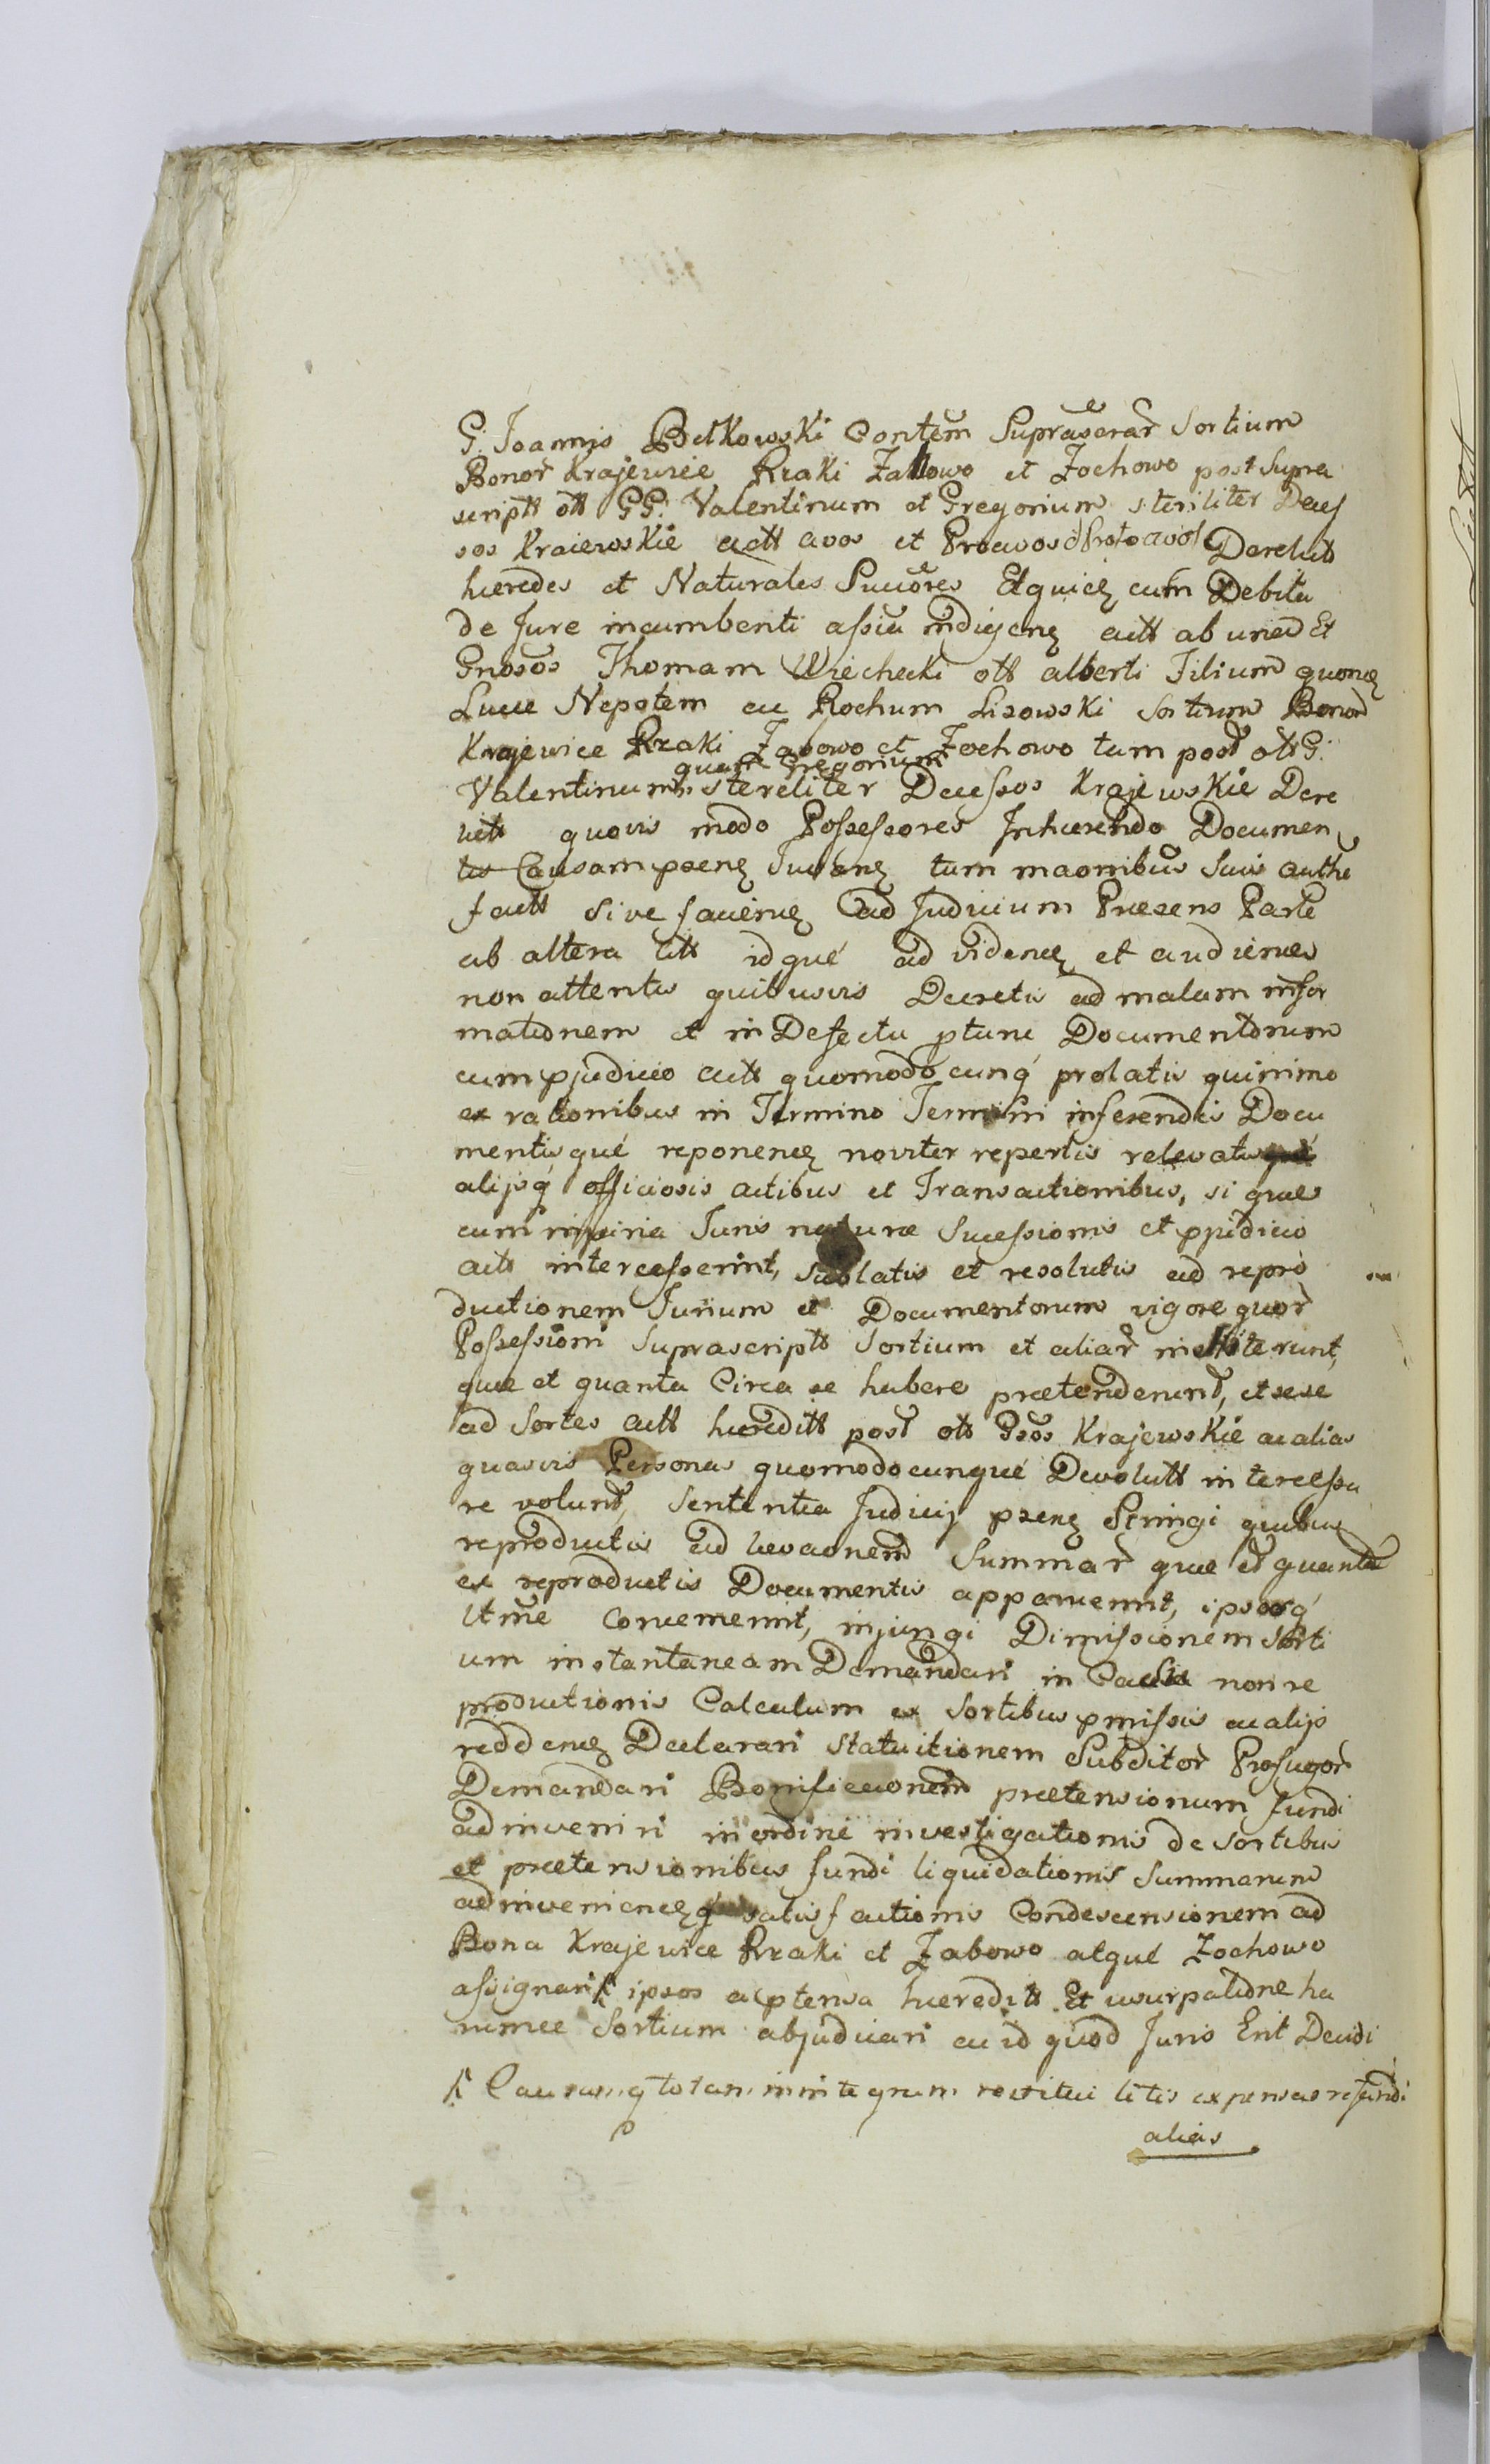 G. Joannis Betkowski Contem̃ Suprascrar̃ Sortium
Bonor̃ Krajewice Rzaki Zabowo et Zochowo post Supra
scriptt ott GG. Valentinum et Gregorium steriliter Deces
sos Kraiewskie actt avos et Proavos et Protoavos Derelictt
hæredes et Naturales Succõres Etquicz cum Debita
de Jure incumbenti assia indigenz actt ab una Et
Gnosos Thomam Wiechecki ott alberti Filium quonz
Lucæ Nepotem ac Rochum Lisowski Sortium Bonor̃
Krajewice Rzaki Zabowo et Zochowo tum post ott G:
quam Gregorium
Valentinum stereliter Decessos Krajewskie Dere
lictt quovis modo Possessores Inhærendo Documen
tis Causam psenz Juvanz tum maonibus Suis authe
factt sive facienz ad Judicium Præsens Parte
ab altera litt idque ad videnz et audienz
non attentis quibusvis Decretis ad malam infor
mationem et in Defectu ptunc Documentorum
cum pjudicio actt quomodocunq prolatis quinimo
ex rationibus in Termino Termini inferendis Docu
mentisque reponenz noviter repertis relevatis
alijsq officiosis actibus et Transactionibus, si quæ
cum injuria Juris naturæ Sucessionis et ppjudicio
actt intercesserint, sublatis et resolutis ad repro
ductionem Jurium et Documentorum vigore quor̃
Possessioni Suprascriptt Sortium et aliar̃ institerunt,
quæ et quanta Circa se habere prætenderint, et sese
ad Sortes actt hæreditt post ott Gsos Krajewskie ac alias
quasvis Personas quomodocunque Devolutt interessa
re volunt, Sententia Judicij psenz Stringi quibus
reproductis ad levaonem Summar̃ quæ et quanta
ex reproductis Documentis apparuerint, ipsosq
Utm̃e Convenerint, injungi Dimissionem Sorti
um instantaneam Demandari in Casu non re
productionis Calculum ex Sortibus pmissis ac alijs
reddenz Declarari Statuitionem Subditor̃ Profugor̃
Demandari Bonificaonem prætensionum fundi
adinveniri in ordine investigationis de Sortibus
et prætensionibus fundi liquidationis Summarum
adinvenienzq satisfactionis Condescensionem ad
Bona Krajewice Rzaki et Zabowo atque Zochowo
assignari ipsos a ptensa hæreditt Et usurpatione ha
rumce Sortium abjudicari ac id quod Juris Erit Decidi
Causamq totam in integrum restitui litis expensas refundi
alias